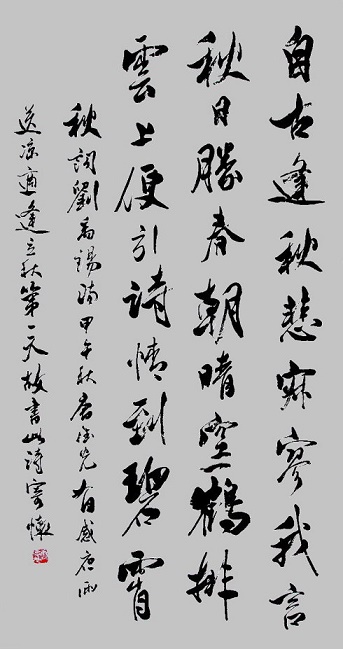 自古逢秋悲寂寥我言
秋日勝春朝晴空一鶴排
雲上便引詩情到碧霄
秋詞劉禹錫詩甲午秋有感雨
送涼適逢立秋第一天故書此詩寄懷